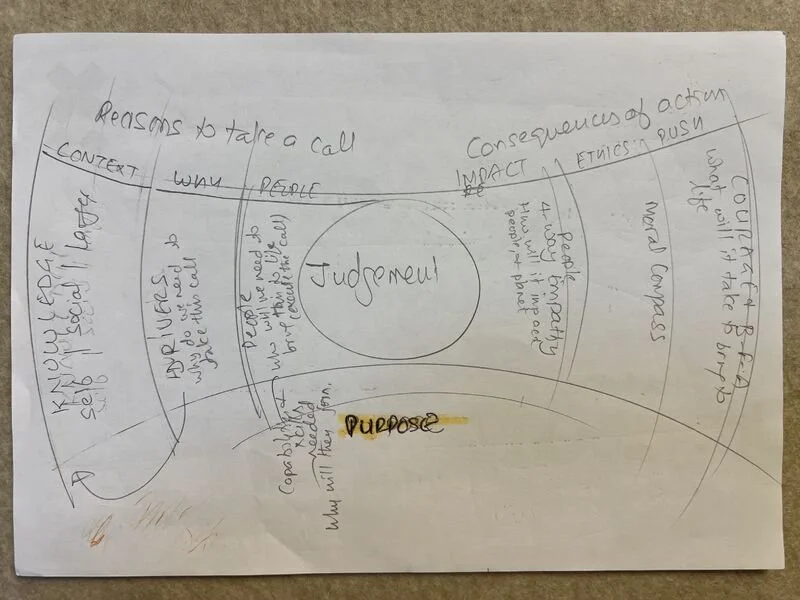 Reasons to take a call
Consequences of action
CONTEXT
WHY
PEOPLE
IMPACT
ETHICS
PUSH
KNOWLEDGE
self | social | larger
DRIVERS
why do we need to
take this call
PEOPLE
who will we need to
bring/execute the call)
Capability &
needed
why will they join.
Judgement
people
4-way Empathy
How will it impact
people & planet
Moral Compass
COURAGE &
what will it take to bring to
life
PURPOSE